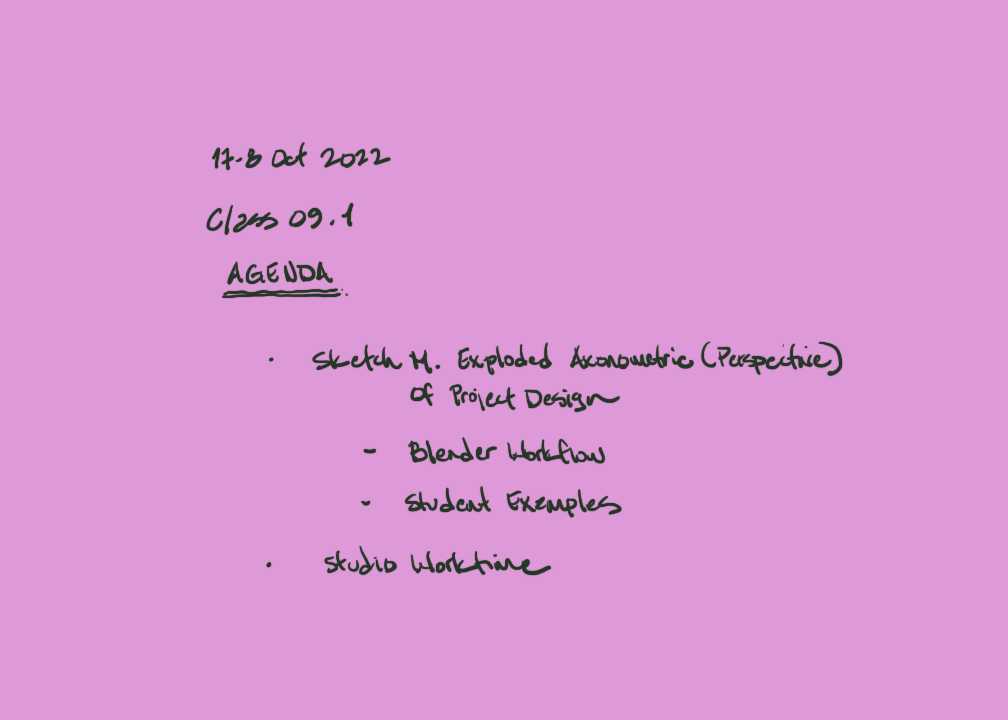 17-8 Oct 2022
Class 09.1
AGENDA
· Sketch M. Exploded Axonometric (Perspective)
of Project Design
- Blender Workflow
- Student Examples
· Studio Worktime